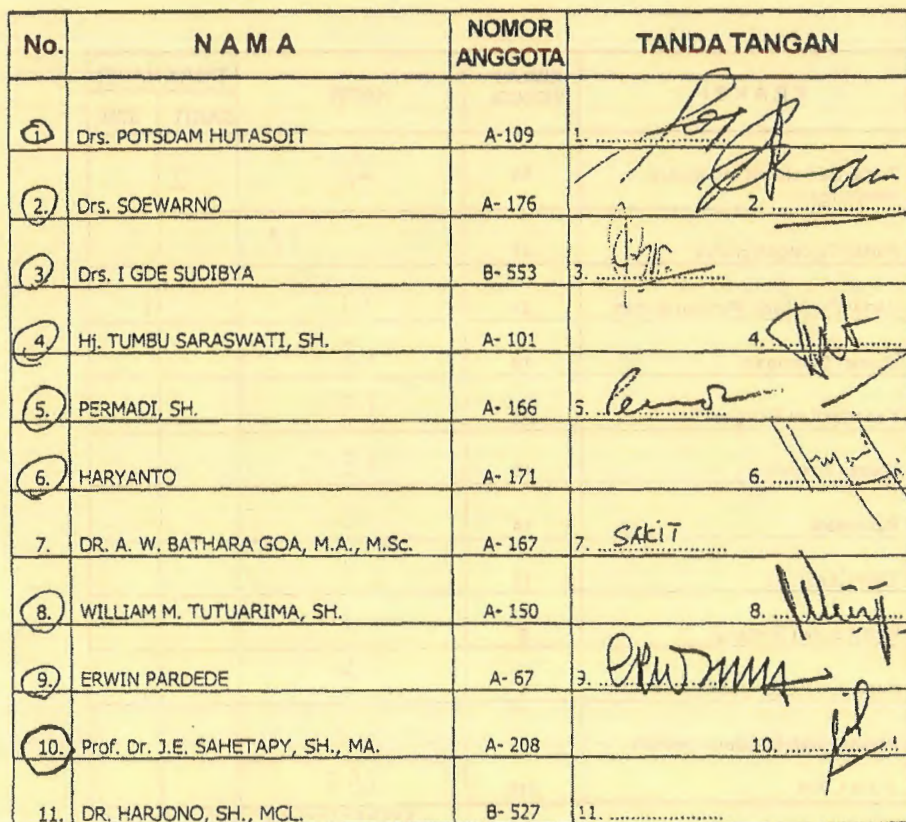 No. N A M A NOMOR ANGGOTA TANDA TANGAN
1. Drs. POTSDAM HUTASOIT A-109 1. ....................
2. Drs. SOEWARNO A- 176 2. ....................
3. Drs. I GDE SUDIBYA B- 553 3. ....................
4. Hj. TUMBU SARASWATI, SH. A- 101 4. ....................
5. PERMADI, SH. A- 166 5. ....................
6. HARYANTO A- 171 6. ....................
7. DR. A. W. BATHARA GOA, M.A., M.Sc. A- 167 7. SAKIT
8. WILLIAM M. TUTUARIMA, SH. A- 150 8. ....................
9. ERWIN PARDEDE A- 67 9. ....................
10. Prof. Dr. J.E. SAHETAPY, SH., MA. A- 208 10. ....................
11. DR. HARJONO, SH., MCL. B- 527 11. ....................